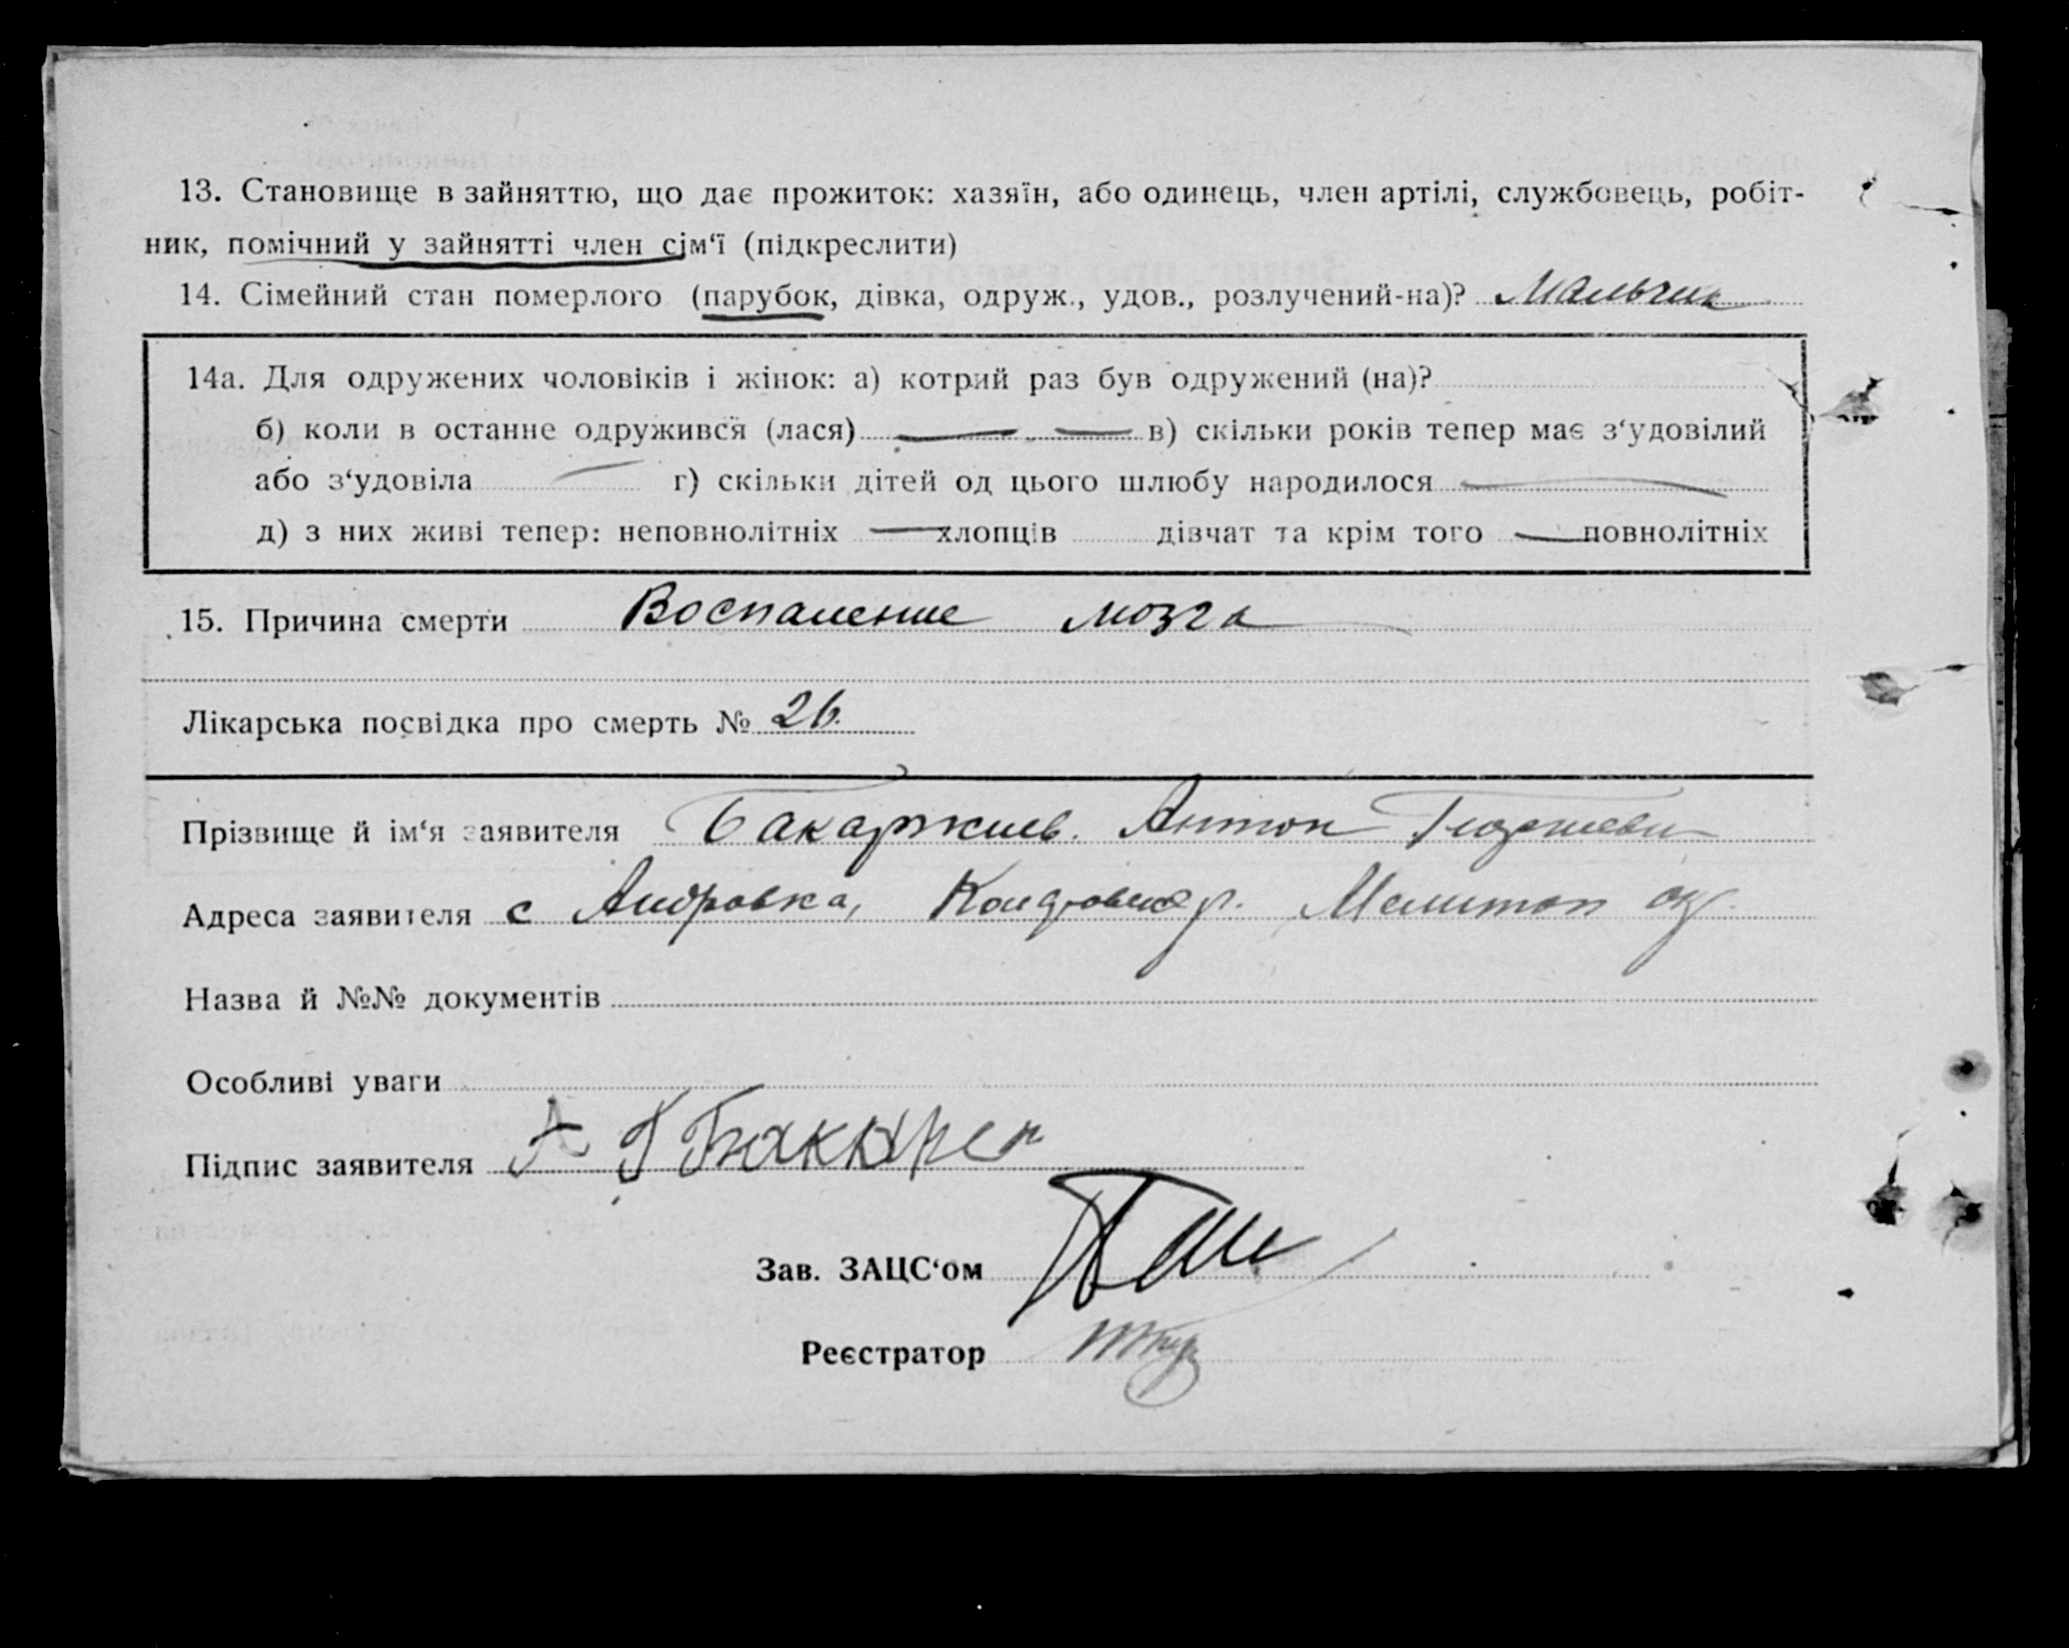 13. Становище в зайняттю, що дає прожиток: хазяїн, або одинець, член артілі, службовець, робіт-
ник, помічний у зайнятті член сім‘ї (підкреслити)
14. Сімейний стан померлого (парубок, дівка, одруж., удов., розлучений-на)? Мальчик
14а. Для одружених чоловіків і жінок: а) котрий раз був одружений (на)?
б) коли в останнє одружився (лася) — — в) скільки років тепер має з‘удовілий
або з‘удовіла — г) скільки дітей од цього шлюбу народилося —
д) з них живі тепер: неповнолітніх — хлопців дівчат та крім того — повнолітніх
15. Причина смерти Воспаление мозга
Лікарська посвідка про смерть № 26.
Прізвище й ім‘я заявителя Бакаржиев. Антон
Адреса заявителя с Андровка, Мелитоп окр.
Назва й №№ документів
Особливі уваги
Підпис заявителя А Г
Зав. ЗАЦС‘ом
Реєстратор